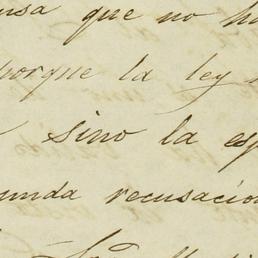 usa que no ha
porque la ley
sino la esp
unda recusacion